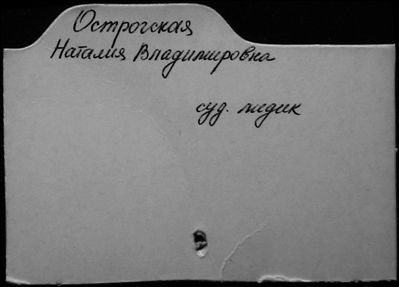 Острогская
Наталия Владимировна
суд. медик